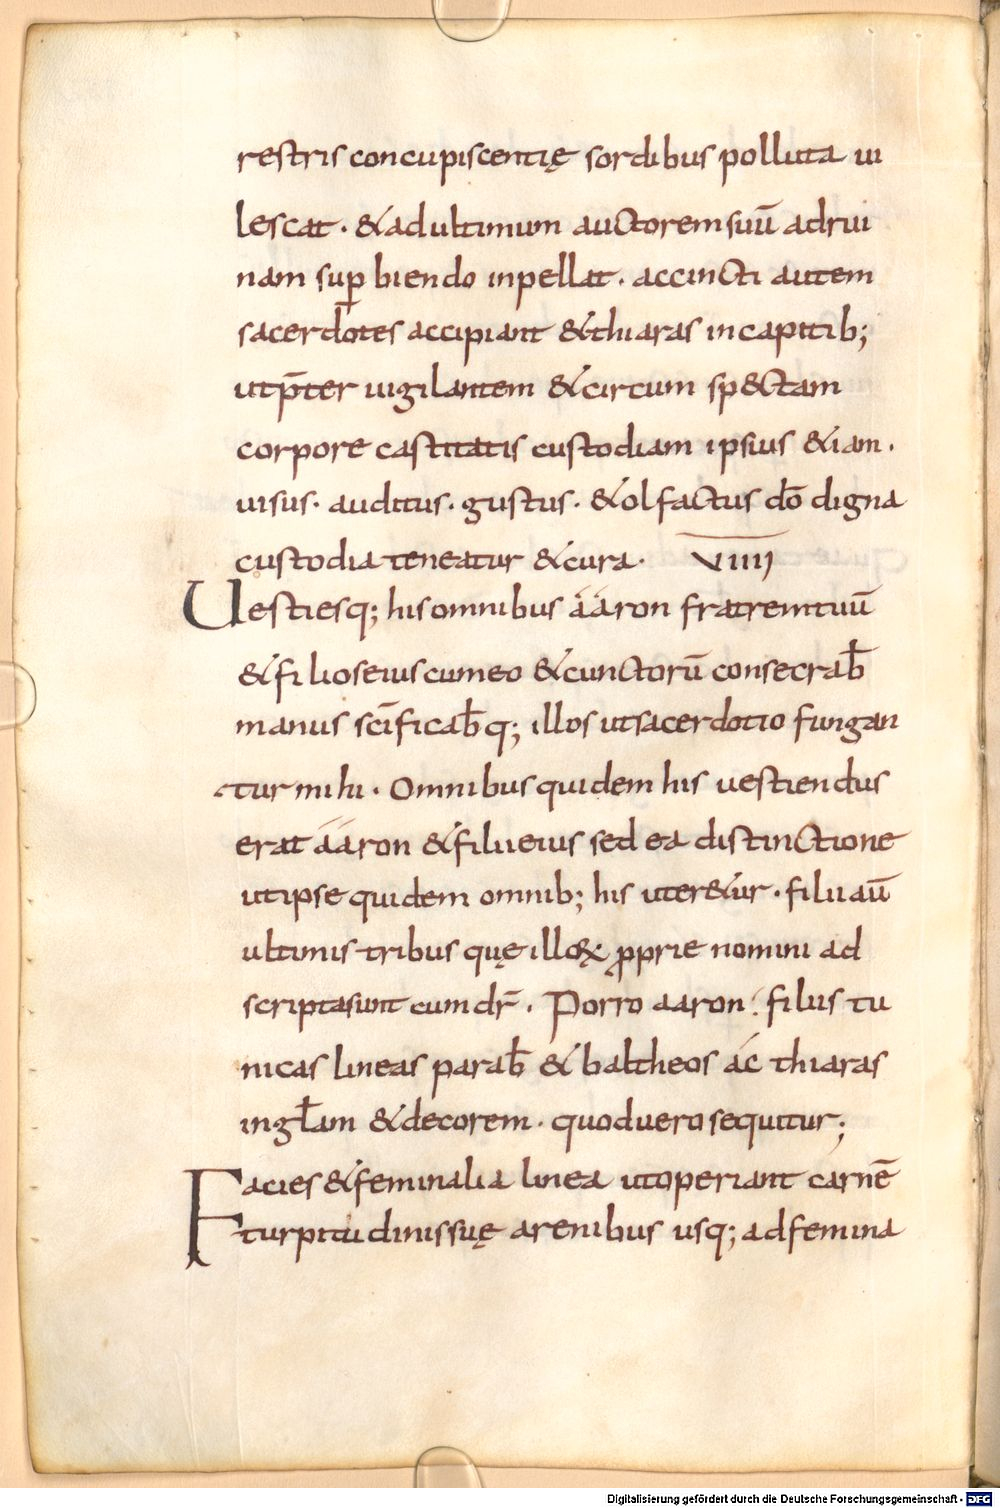 restris concupiscentię sordibus polluta ui
lescat · & ad ultimum auctorem suū ad rui
nam sup̱biendo inpellat · accincti autem
sacerdotes accipiant & thiaras in capitib;
ut p̄ter uigilantem & circumspectam
corpore castitatis custodiam ipsius & iam ·
uisus · auditus · gustus · & olfactus dō digna
custodia teneatur & cura · VIIII
Uestiesq; his omnibus ááron fratrem tuū
& filios eius cum eo & cunctorū consecrab̄
manus sc̄ificab̄q; illos ut sacerdotio fungan
tur mihi · Omnibus quidem his uestiendus
erat ááron & filii eius sed ea distinctione
ut ipse quidem omnib; his uteretur · filii aū
ultimis tribus quę illoꝝ ꝓprie nomini ad
scripta sunt cum dr̄ · Porro aaron filiis tu
nicas lineas parab̄ & baltheos ac thiaras
in gl̄am & decorem · quod uero sequitur;
Facies & feminalia linea ut operiant carnē
turpitudinis suę a renibus usq; ad femina
Digitalisierung gefördert durch die Deutsche Forschungsgemeinschaft - DFG